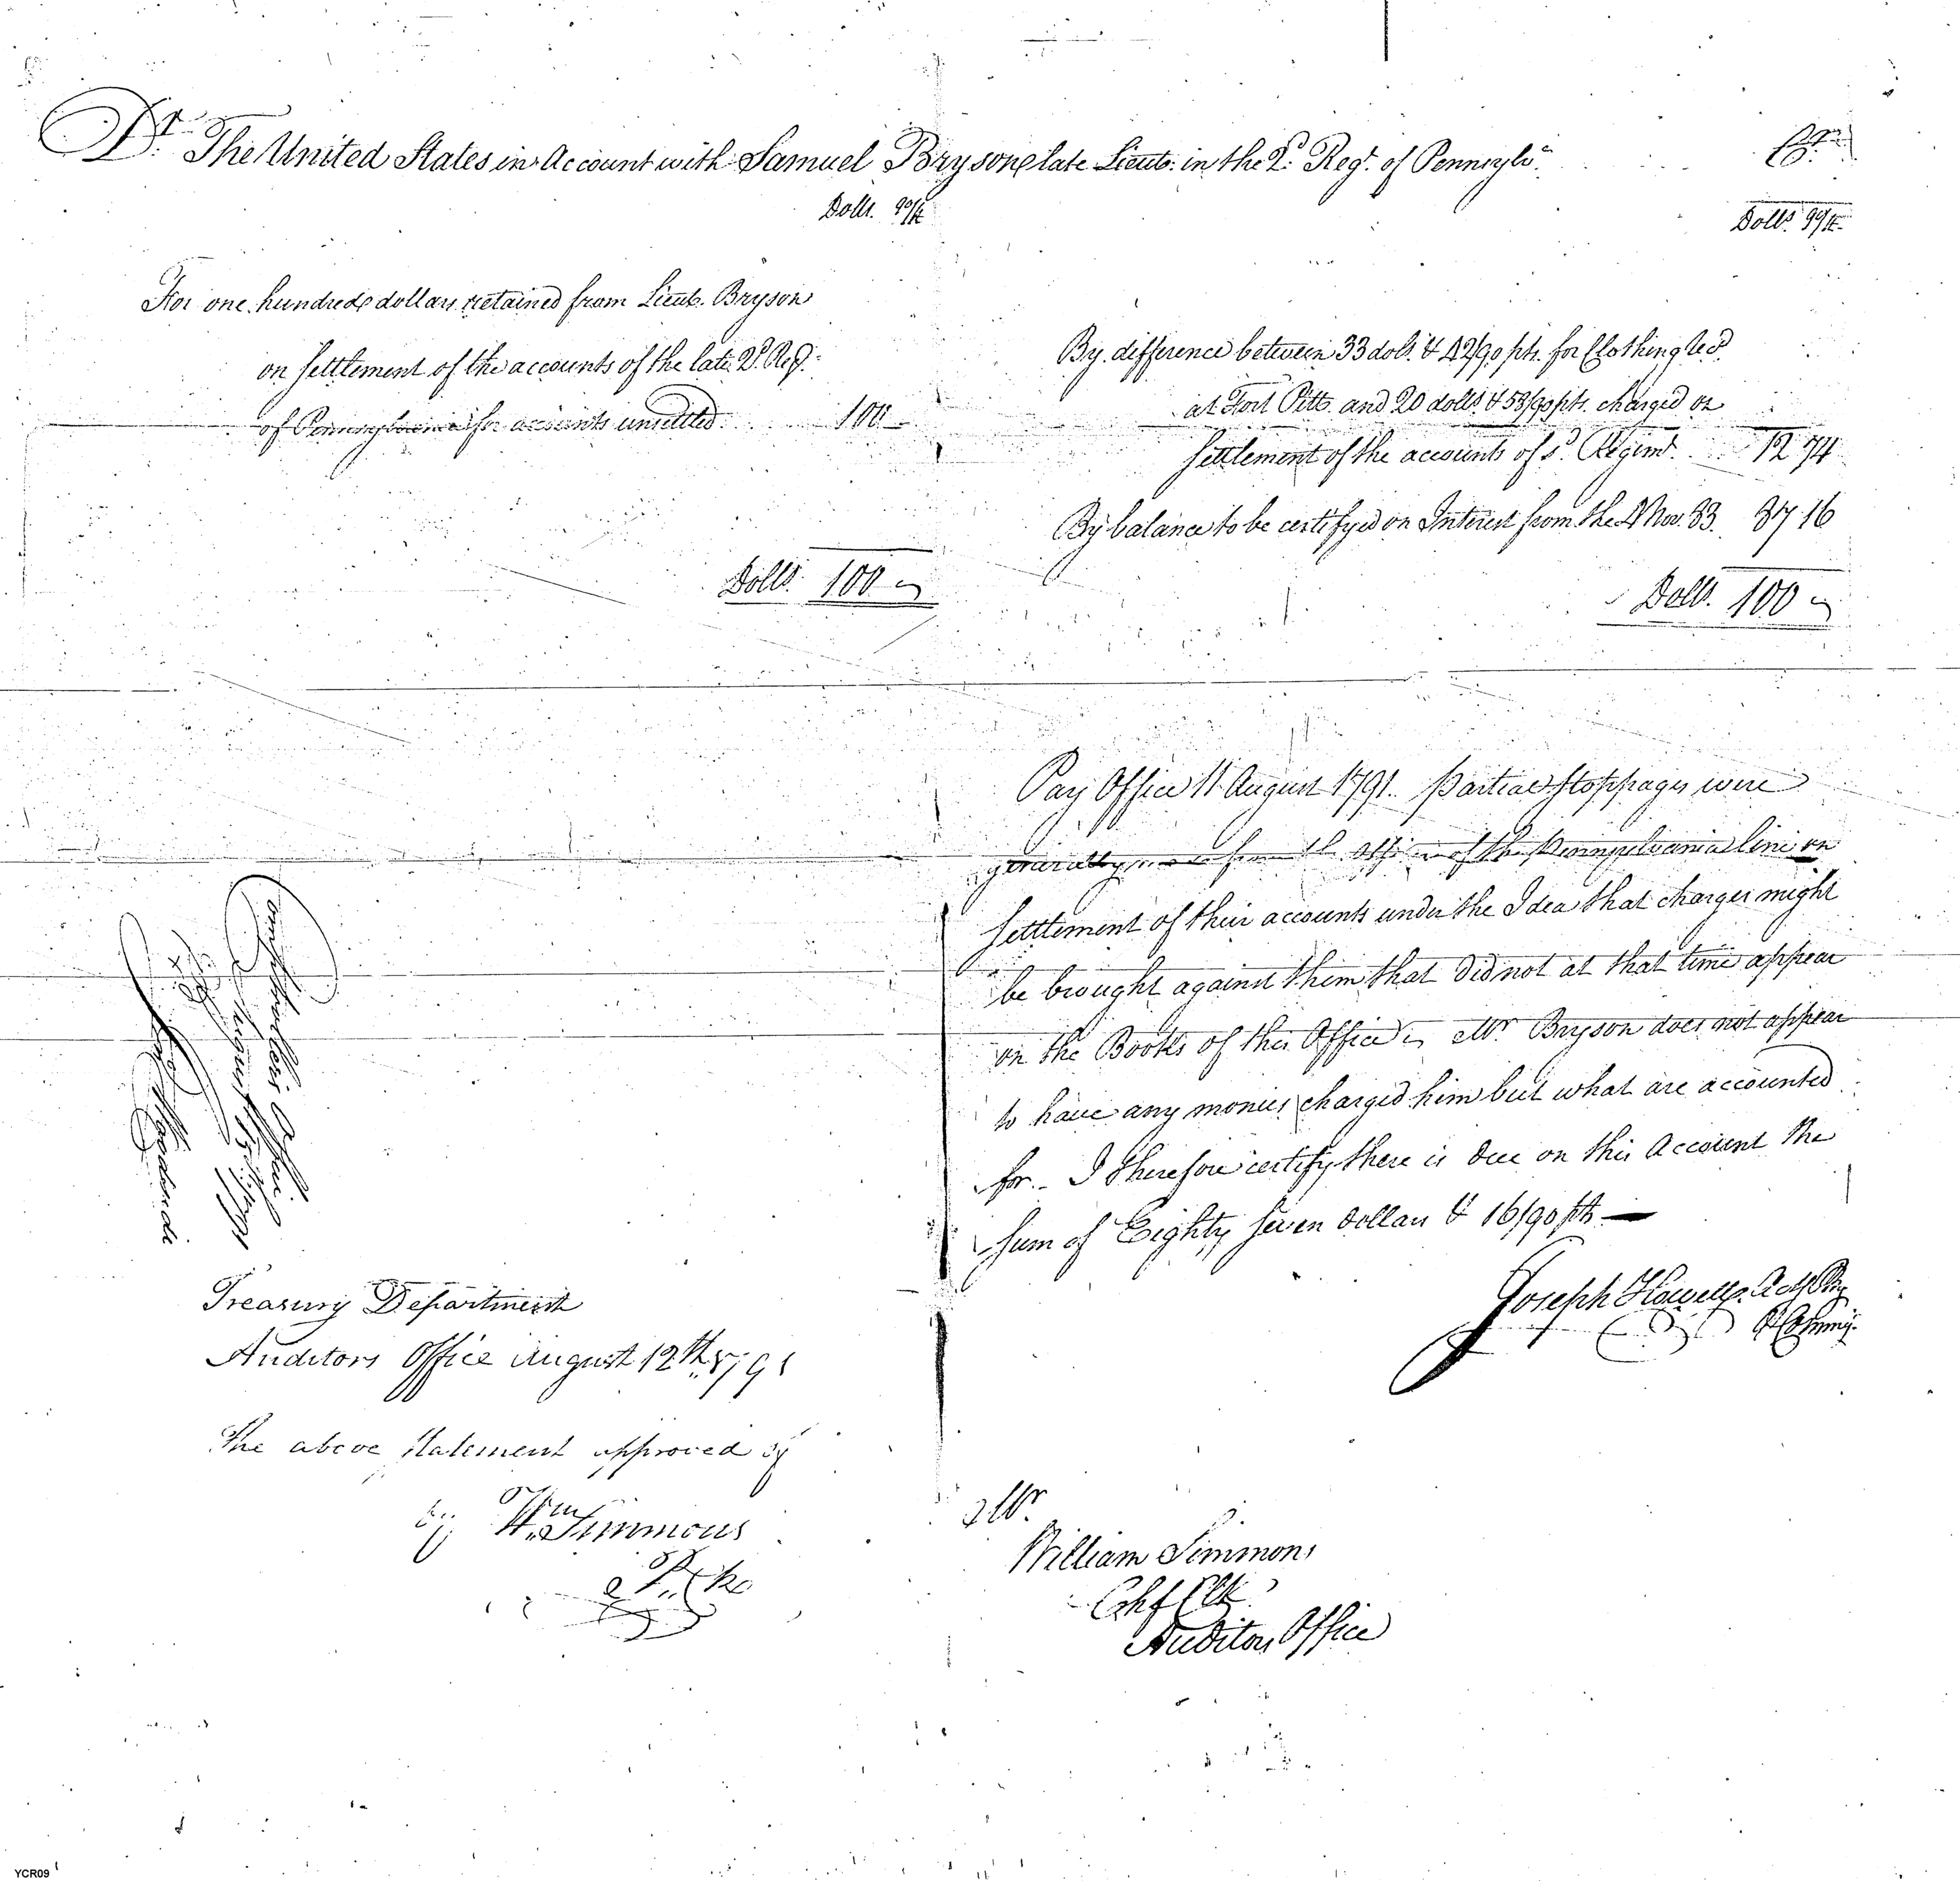 Dr. The United States in Account with Samuel Bryson late Lieut. in the 2d. Regt. of Pennsylva. Cr.
Dolls. 90/th Dolls. 90/th
For one hundred dollars retained from Lieut. Bryson
on settlement of the accounts of the late 2d. Reg.
of Pennsylvania for accounts unsettled 100
Dolls. 100
By difference between 33 dols. & 42/90 pts. for Clothing recd.
at Fort Pitt and 20 dolls. & 58/90 pts. charged on
settlement of the accounts of sd. Regimt. 12 74
By balance to be certifyed on Interest from the 4 Nov. 83. 87 16
Dolls. 100
Pay Office 11 August 1791. Partial Stoppages were
generally made from the Officers of the Pennsylvania line on
Settlement of their accounts under the Idea that charges might
be brought against them that did not at that time appear
on the Books of this Office Mr. Bryson does not appear
to have any monies charged him but what are accounted
for. I therefore certify there is due on this Account the
sum of Eighty seven dollars & 16/90 pts
Joseph Howell
Treasury Department
Auditors Office August 12th 1791
The above statement approved of
by Wm. Simmons
Mr.
William Simmons
Auditors Office
YCR09